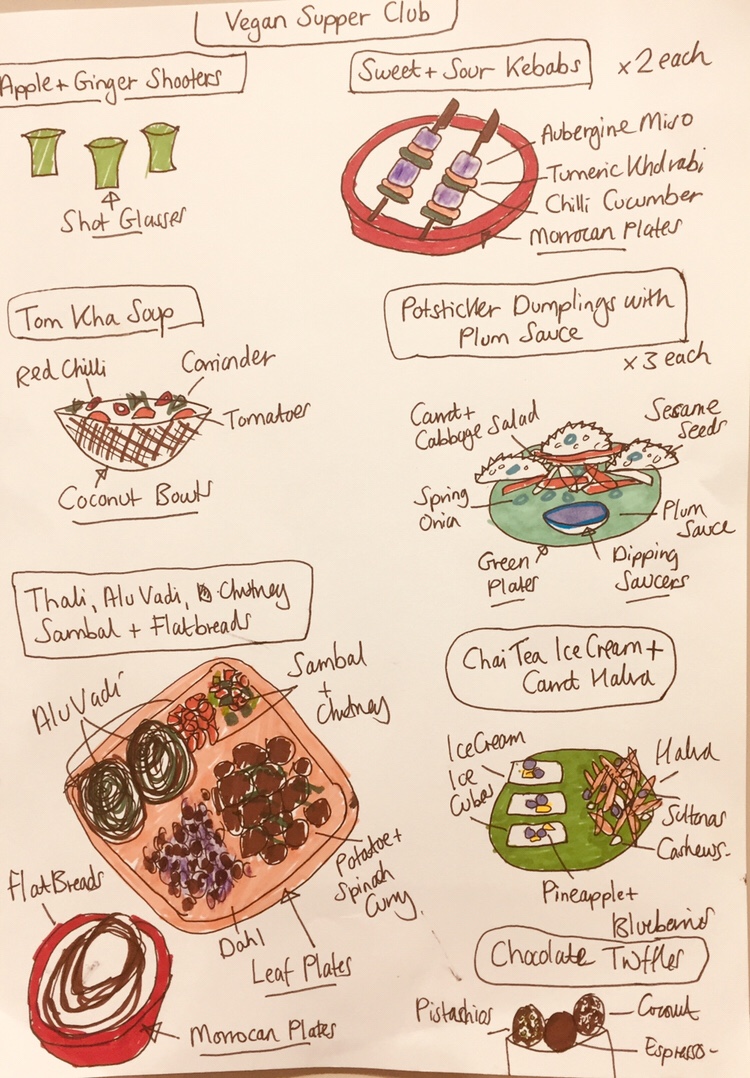 Vegan Supper Club
Apple + Ginger Shooters
Shot Glasses
Sweet + Sour Kebabs
x2 each
Aubergine Miso
Tumeric Kholrabi
Chilli Cucumber
Morrocan Plates
Tom Kha Soup
Red Chilli
Corriander
Tomatoes
Coconut Bowls
Potsticker Dumplings with
Plum Sauce
x3 each
Carrot +
Cabbage Salad
Sesame
Seeds
Spring
Onion
Plum
Sauce
Green
Plates
Dipping
Saucers
Thali, Alu Vadi, Chutney
Sambal + Flatbreads
Alu Vadi
Sambal
+
Chutney
Potatoe +
Spinach
Curry
Dahl
Leaf Plates
FlatBreads
Morrocan Plates
Chai Tea Ice Cream +
Carrot Halva
Ice Cream
Ice
Cubes
Halva
Sultanas
Cashews
Pineapple +
Blueberries
Chocolate Truffles
Pistachios
Coconut
Espresso